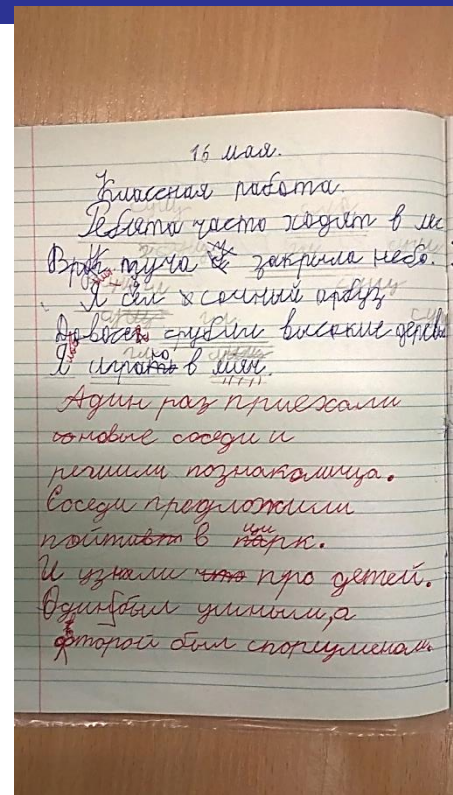 16 мая.
Классная работа.
Ребята часто ходят в лес
Вдруг туча закрыла небо.
Я сел сочный арбуз
срубили высокие деревья
Я играю в мяч.
Адин раз приехали
новые соседи и
решили познакомица.
Соседи предложили
пойти в парк.
И узнали что про детей.
Один был умным, а
фторой был спорцменом.